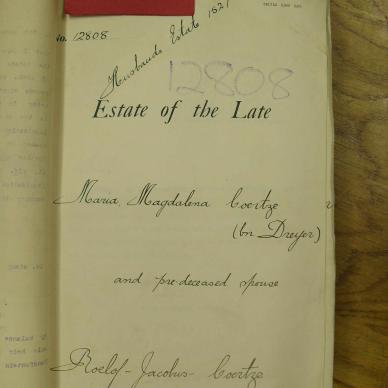 No. 12808
Husbands Estate 1821
12808
Estate of the Late
Maria Magdalena Coertze
(bn Dreyer)
and pre-deceased spouse
Roelof-Jacobus-Coertze